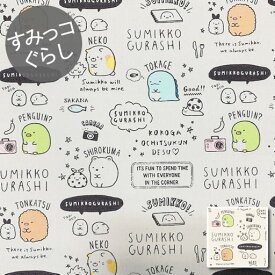 すみっコ
ぐらし
NEKO
SUMIKKO
GURASHI
TOKAGE
There is Sumikko.
we always be.
Sumikko will
always be mine
SUMIKKO!
SUMIKKOGURASHI
SAKANA
Good!!
SUMIKKOGURASHI
PENGUIN?
SUMIKKO
GURASHI
KOKOGA
OCHITSUKUN
DESU
PENGUIN?
SHIROKUMA
ITS FUN TO SPEND TIME
WITH EVERYONE
IN THE CORNER
TONKATSU
SUMIKKOGURASHI
TONKATSU
SUMIKKO
GURASHI
SUMIKKO!
There is Sumikko.
we always be.
NEKO
SUMIKKO
GURASHI
TOKAGE